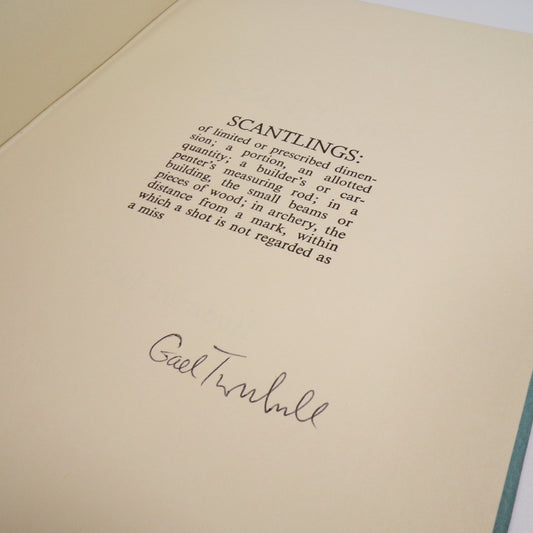 SCANTLINGS:
of limited or prescribed dimen-
sion; a portion, an allotted
quantity; a builder's or car-
penter's measuring rod; in a
building, the small beams or
pieces of wood; in archery, the
distance from a mark, within
which a shot is not regarded as
a miss
Gael Turnbull